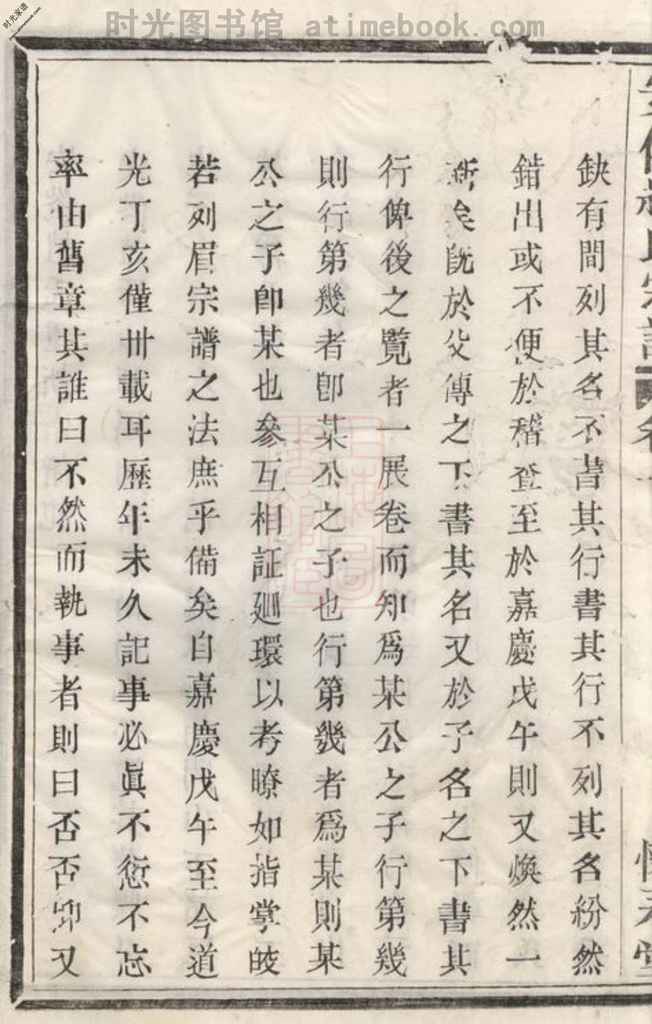 时光图书馆 atimebook.com
时光家谱
缺有間列其名不書其行書其行不列其名紛然
錯出或不便於稽查至於嘉慶戊午則又煥然一
新矣旣於父傳之下書其名又於子名之下書其
行俾後之覽者一展卷而知爲某公之子行第幾
則行第幾者卽某公之子也行第幾者爲某則某
公之子卽某也參互相証廻環以考瞭如指掌皎
若列眉宗譜之法庶乎備矣自嘉慶戊午至今道
光丁亥僅卅載耳歷年未久記事必眞不愆不忘
率由舊章其誰曰不然而執事者則曰否否卽又
氏宗譜